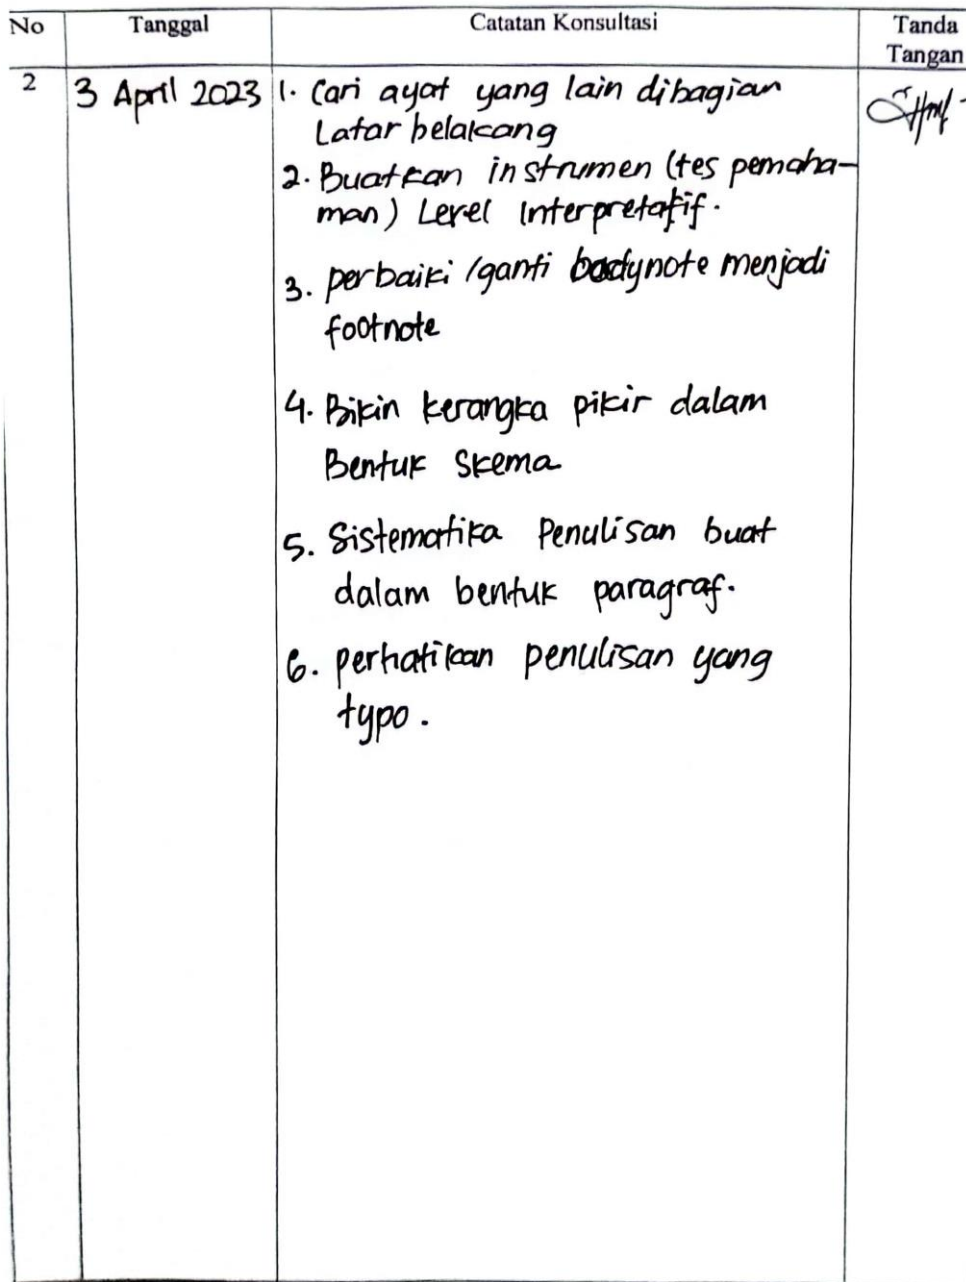 No Tanggal Catatan Konsultasi Tanda
Tangan
2 3 April 2023 1. Cari ayat yang lain dibagian
Latar belakang
2. Buatkan instrumen (tes pemaha-
man) Level Interpretatif.
3. perbaiki /ganti bodynote menjadi
footnote
4. Bikin kerangka pikir dalam
Bentuk Skema
5. Sistematika Penulisan buat
dalam bentuk paragraf.
6. perhatikan penulisan yang
typo.